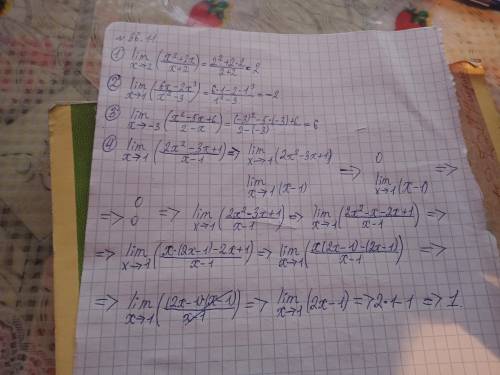 №86.11.
① lim x→2 (x²+2x / x+2) = 2²+2·2 / 2+2 = 2
② lim x→1 (6x-2x² / x²-3) = 6·1-2·1² / 1²-3 = -2
③ lim x→-3 (x²-5x+6 / 2-x) = (-3)²-5·(-3)+6 / 2-(-3) = 6
④ lim x→1 (2x²-3x+1 / x-1) => lim x→1 (2x²-3x+1) / lim x→1 (x-1) => 0 / lim x→1 (x-1) =>
=> 0 / 0 => lim x→1 (2x²-3x+1 / x-1) => lim x→1 (2x²-x-2x+1 / x-1) =>
=> lim x→1 (x·(2x-1)-2x+1 / x-1) => lim x→1 (x(2x-1)-(2x-1) / x-1) =>
=> lim x→1 ((2x-1)(x-1) / x-1) => lim x→1 (2x-1) => 2·1-1 => 1.